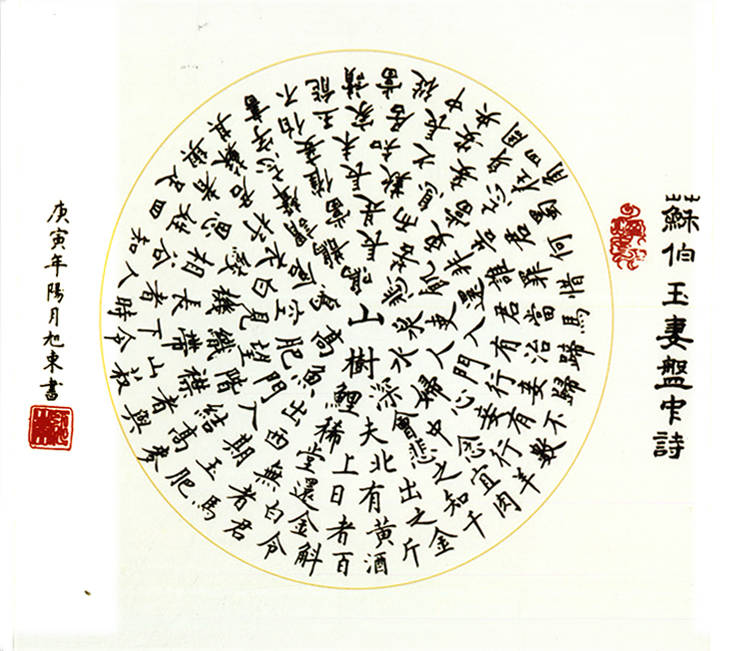 蘇伯玉妻盤中詩
山樹高鳥鳴悲
泉水深鯉魚肥
空倉鵲常苦飢
吏人婦會夫稀
出門望見白衣
謂當是而更非
還入門中心悲
北上堂西入階
急機織杼聲催
長歎息當語誰
君有行妾念之
出有日還無期
結襟帶長相思
君忘妾未知之
妾忘君罪當治
妾有行宜知之
黃者金白者玉
高者山下者谷
姓者蘇字伯玉
家居長安身在蜀
何惜馬蹄歸不數
羊肉千斤酒百斛
令君馬肥麥與菽
今時人知四足
與其書不能讀
當從中央周四角
庚寅年陽月旭東書